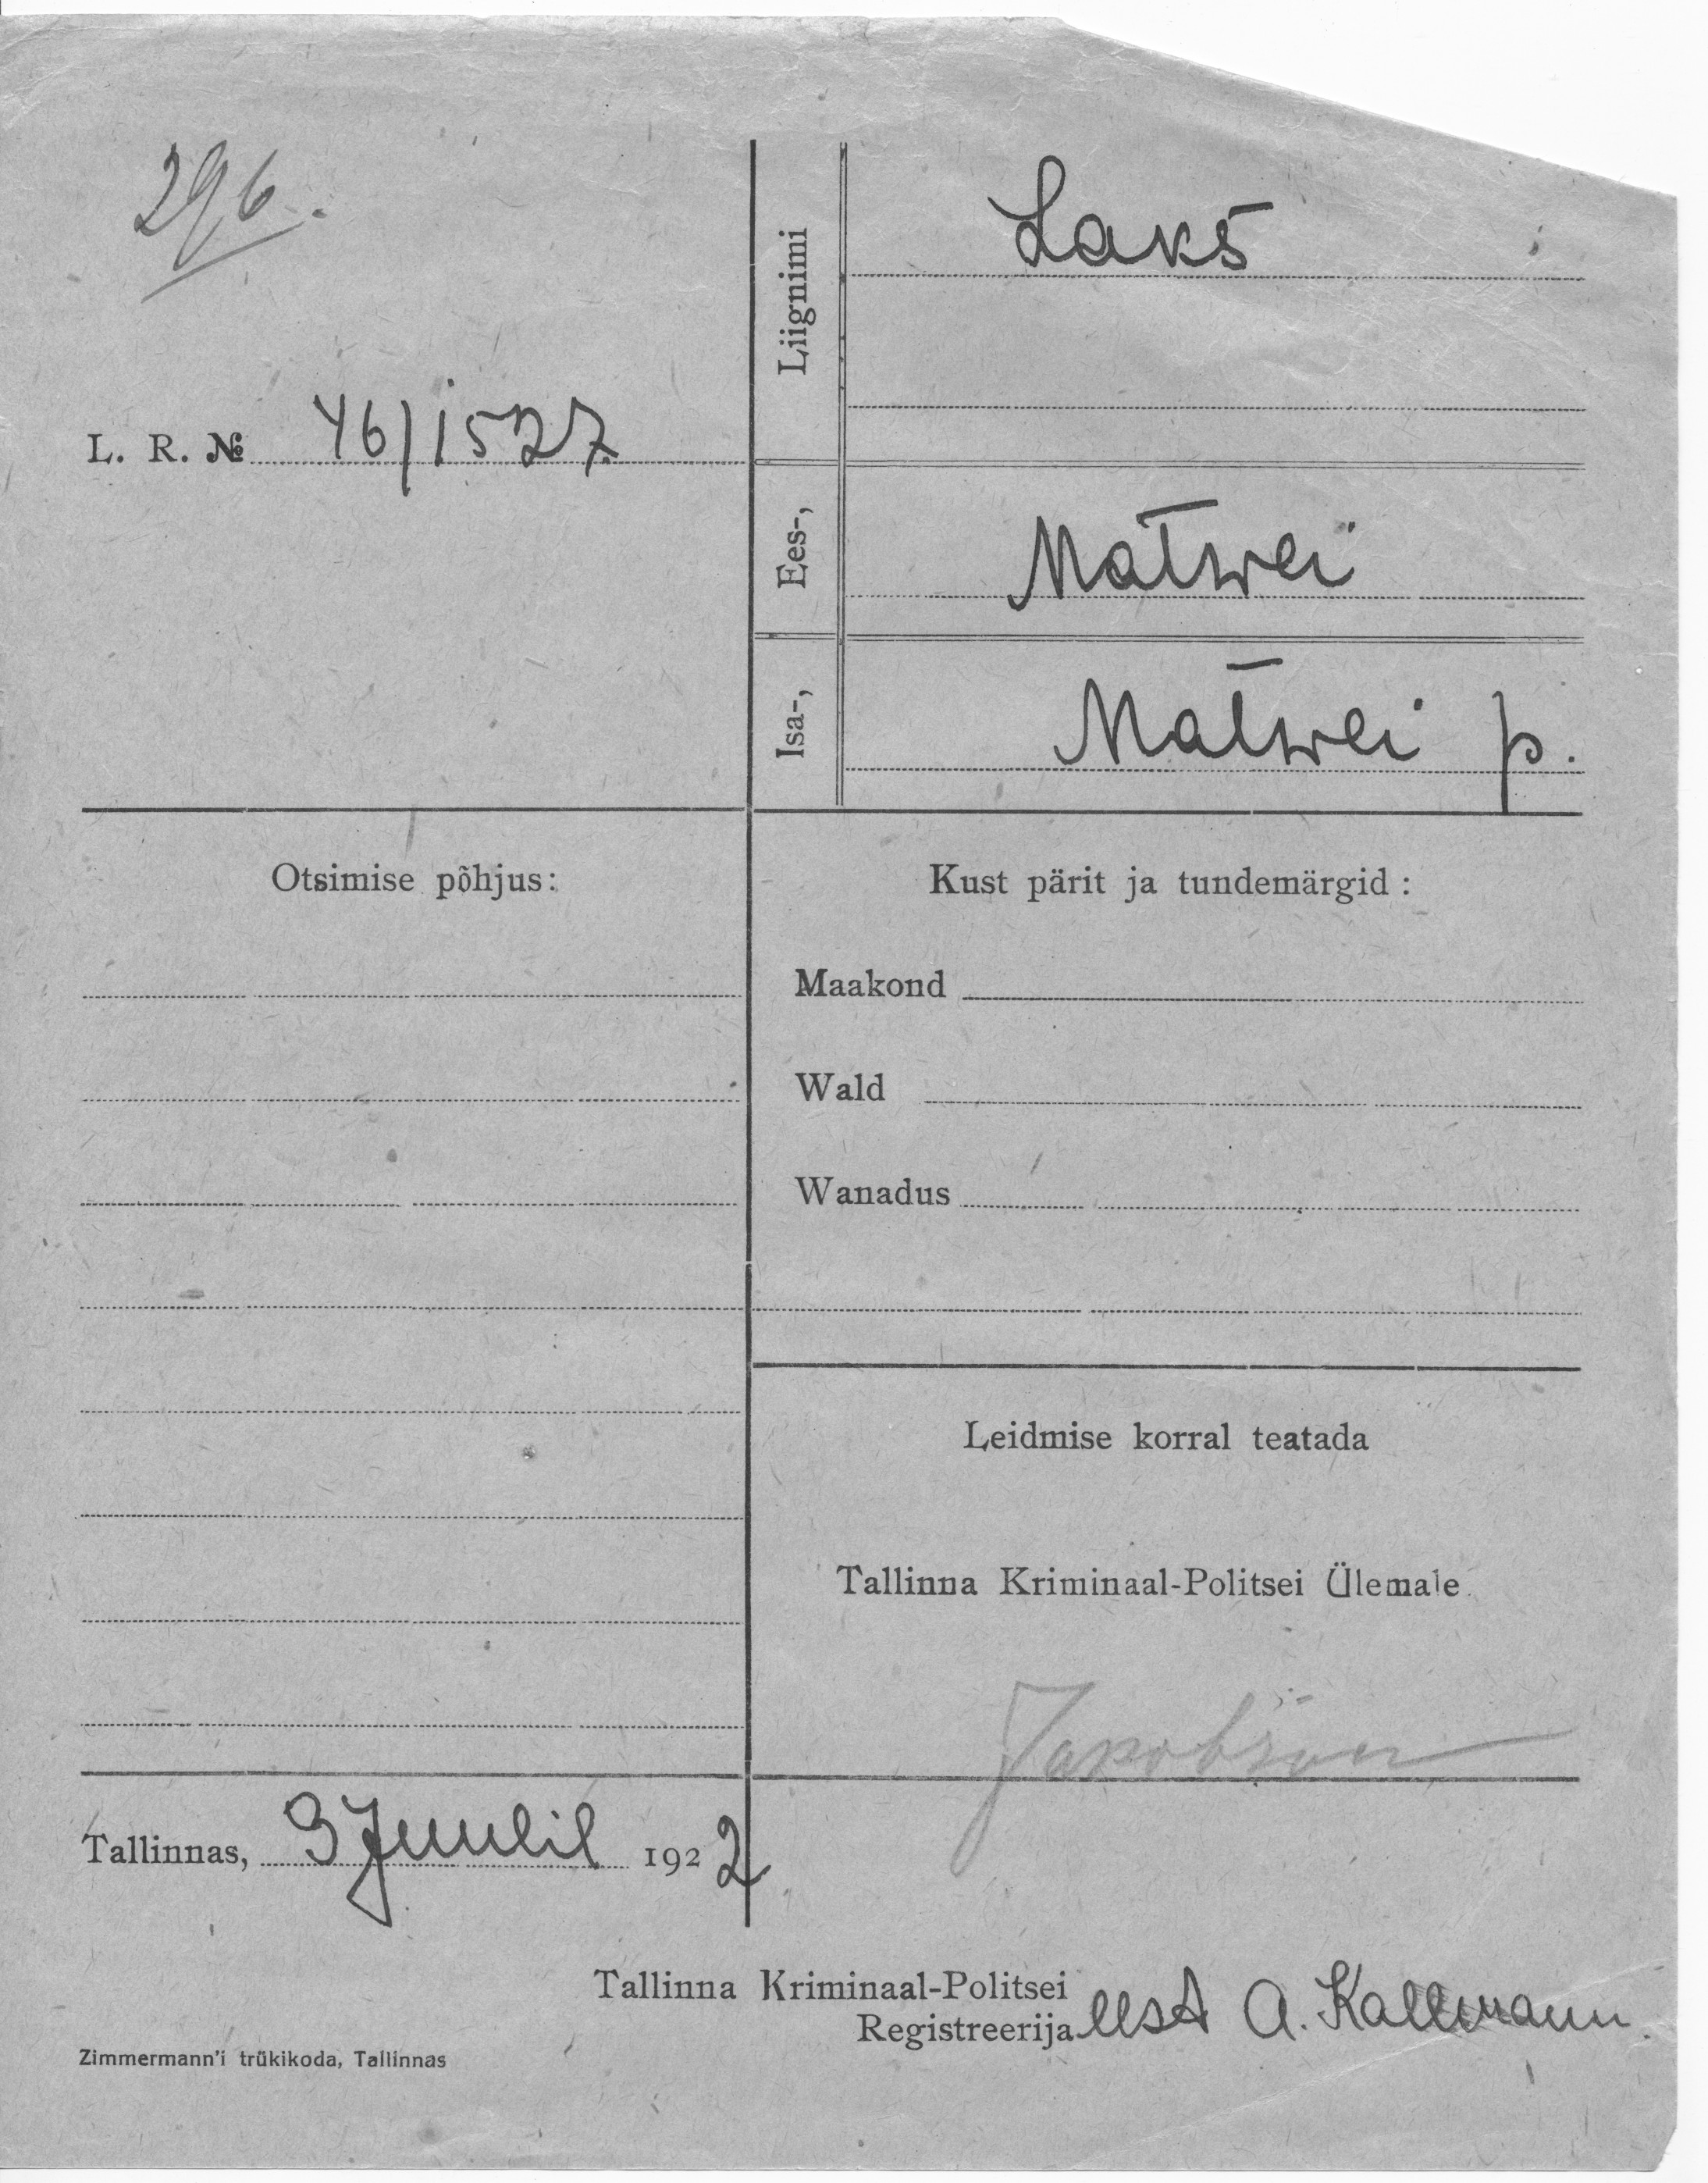 296.
L. R. № 46/1527
Liignimi
Laks
Ees-,
Matwei
Isa-,
Matwei p.
Otsimise põhjus:
Kust pärit ja tundemärgid:
Maakond
Wald
Wanadus
Leidmise korral teatada
Tallinna Kriminaal-Politsei Ülemale
Jakobson
Tallinnas, 3 Juulil 1922
Tallinna Kriminaal-Politsei
Registreerija eest A. Kallmann.
Zimmermann'i trükikoda, Tallinnas